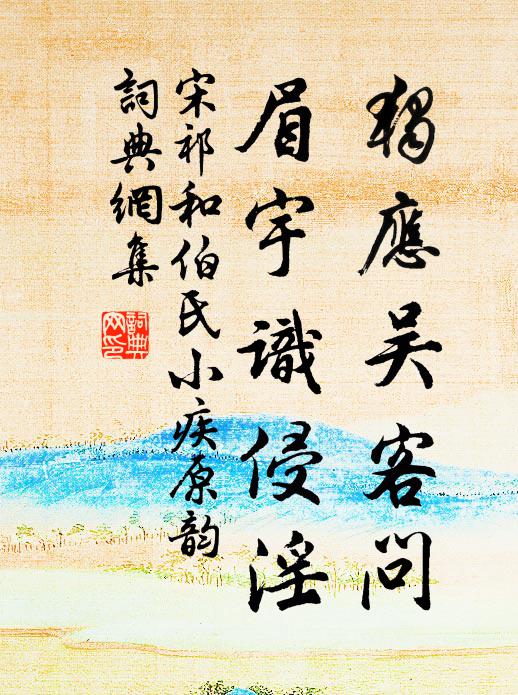 獨應吴客問
眉宇識侵淫
宋祁和伯氏小疾原韵
詞典網集
詞典網印